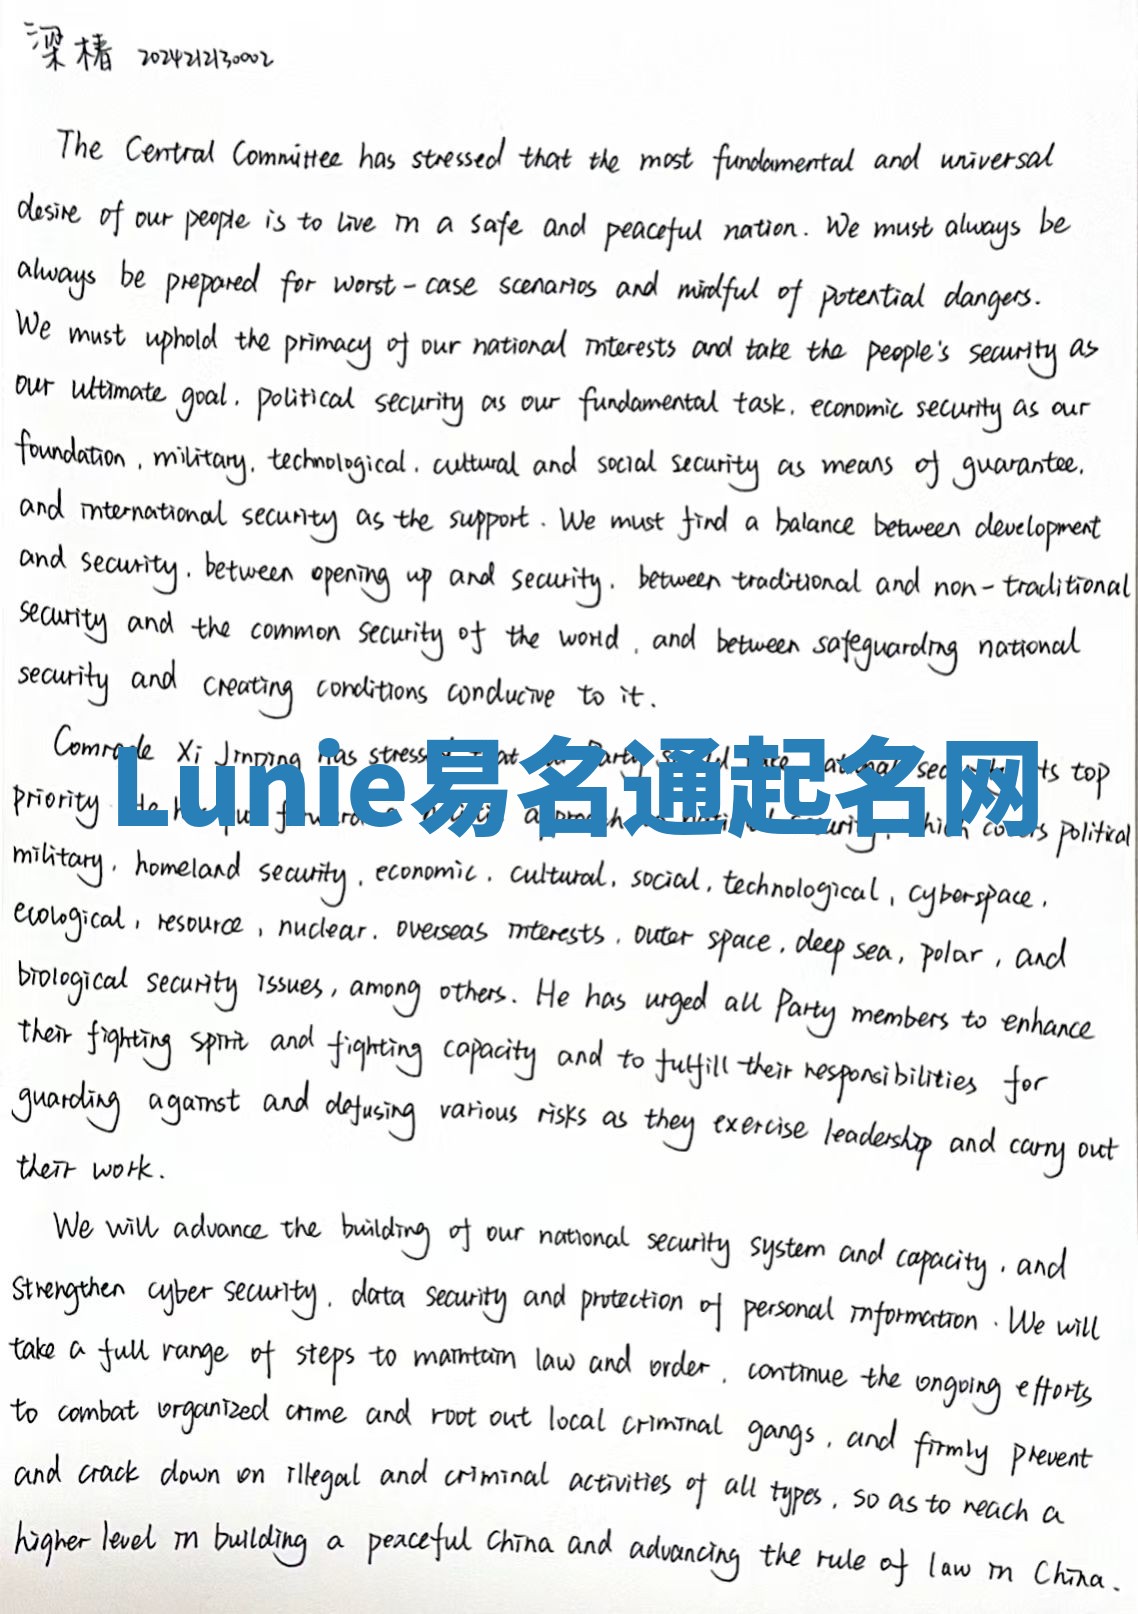 梁椿 2024212130002
The Central Committee has stressed that the most fundamental and universal
desire of our people is to live in a safe and peaceful nation. We must always be
always be prepared for worst-case scenarios and mindful of potential dangers.
We must uphold the primacy of our national interests and take the people's security as
our ultimate goal, political security as our fundamental task, economic security as our
foundation, military, technological, cultural and social security as means of guarantee,
and international security as the support. We must find a balance between development
and security, between opening up and security, between traditional and non-traditional
security and the common security of the world, and between safeguarding national
security and creating conditions conducive to it.
Comrade Xi Jinping has stressed that Party national security its top
Lunie易名通起名网
priority He has put forward a approach national security, which covers political
military, homeland security, economic, cultural, social, technological, cyberspace,
ecological, resource, nuclear, overseas interests, outer space, deep sea, polar, and
biological security issues, among others. He has urged all Party members to enhance
their fighting spirit and fighting capacity and to fulfill their responsibilities for
guarding against and defusing various risks as they exercise leadership and carry out
their work.
We will advance the building of our national security system and capacity, and
strengthen cyber security, data security and protection of personal information. We will
take a full range of steps to maintain law and order, continue the ongoing efforts
to combat organized crime and root out local criminal gangs, and firmly prevent
and crack down on illegal and criminal activities of all types, so as to reach a
higher level in building a peaceful China and advancing the rule of law in China.